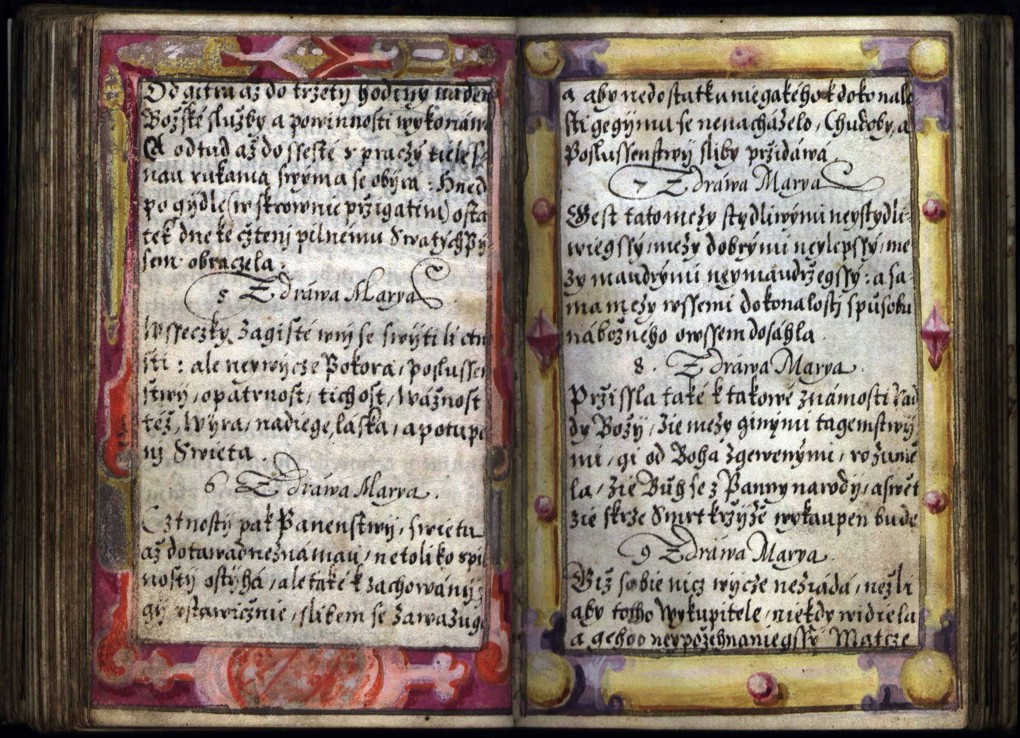 Od gitra až do tržetý hodiny na den
Božské služby a powinnosti wykonáwa
A odtud až do ssesté v praczý tieles
nau rukama swyma se obýra: Hned
po gýdle (w skrownie przigatém) osta
tek dne ke cžtenj pilnému Swatých Py
sem obraczela:
5 Zdráwa Marya
Wsseczky Zagisté w nj se swýti li ctno
sti: ale neywýcze Pokora, poslussen
stwy, opatrnost, tichost, Wážnost
též, Wyra, nadiege, láska, a potupe
nj Swieta.
6 Zdráwa Marya.
Cžtnostý pak Panenstwj, swietu
až dotawad neznámau, netoliko spil
nostý ostýhá, ale také k zachowánj
gj vstawicžnie, slibem se zawazuge
a aby nedostatku niegakého k dokonalo
sti gegýmu se nenacházelo, Chudoby, a
Poslussenstwj sliby przidáwá
7 Zdráwa Marya
Gest tato mezy stydliwými neystydli
wiegssý, mezy dobrými neylepssý, me
zy maudrými neymaudržegssý: a sa
ma mezy wssemi dokonalosti spůsobu
nábožného owssem dosáhla.
8. Zdráwa Marya.
Przissla také k takowé známosti Rad
dy Božý, žie mezy ginými tagemstwý
mi, gi od Boha zgewenými, rozumie
la, žie Bůh se z Panny narody, a swět
žie skrze Smrt krzýže wykaupen bude
9 Zdráwa Marya
Giž sobie nicz wýcže nežiáda, nežli
aby toho Wykupitele, niekdy widiela
a geho neypožehnaniegssý Matcze